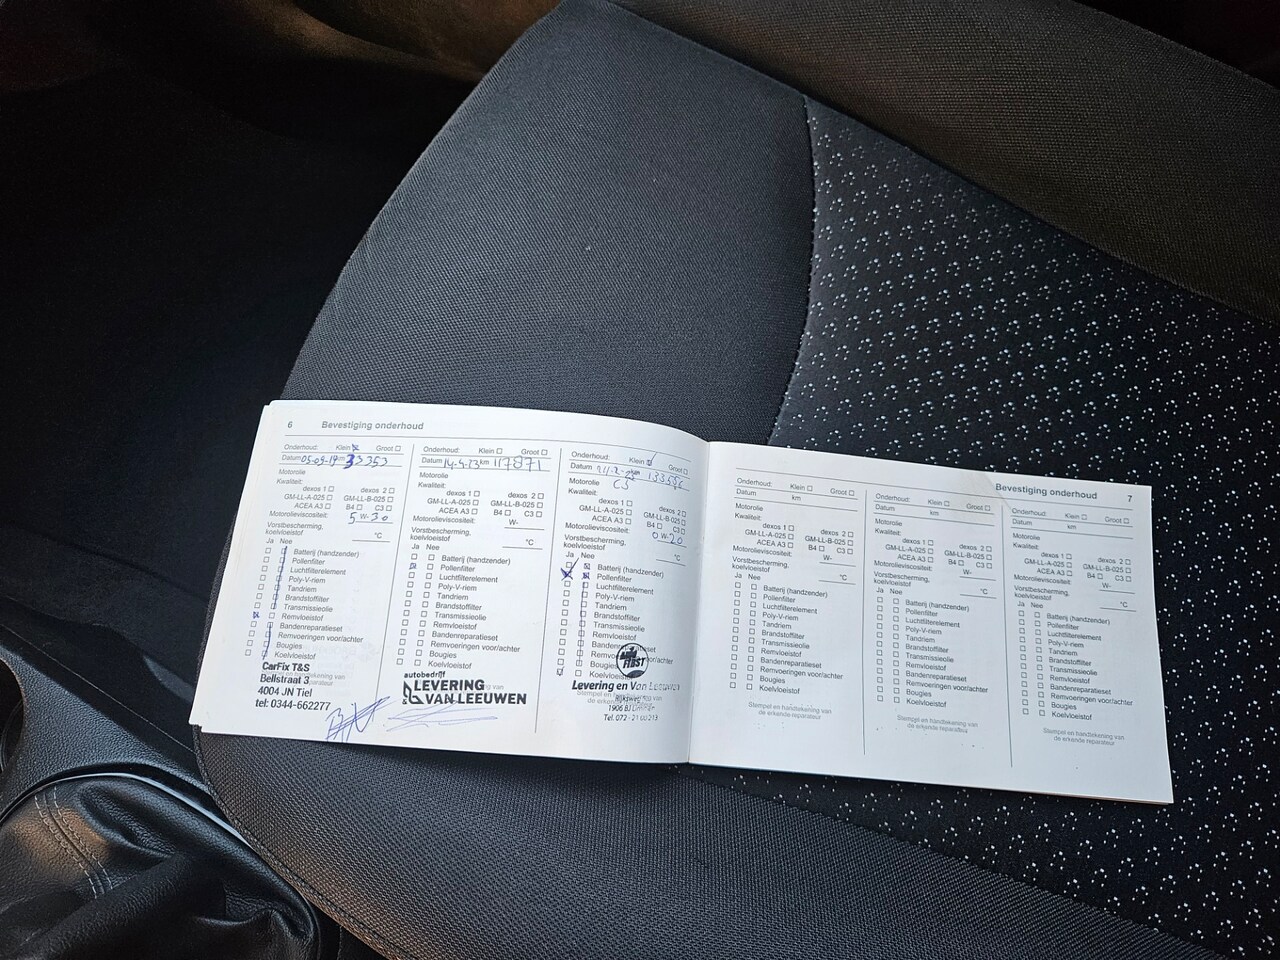 6 Bevestiging onderhoud
Onderhoud: Klein Groot
Datum 05-09-19 km 35353
Motorolie
Kwaliteit:
dexos 1 dexos 2
GM-LL-A-025 GM-LL-B-025
ACEA A3 B4 C3
Motorolieviscositeit: 5 W-30
Vorstbescherming, koelvloeistof °C
Ja Nee
Batterij (handzender)
Pollenfilter
Luchtfilterelement
Poly-V-riem
Tandriem
Brandstoffilter
Transmissieolie
Remvloeistof
Bandenreparatieset
Remvoeringen voor/achter
Bougies
Koelvloeistof
CarFix T&S
Bellstraat 3
4004 JN Tiel
tel: 0344-662277
Onderhoud: Klein Groot
Datum 14-4-23 km 117871
Motorolie
Kwaliteit:
dexos 1 dexos 2
GM-LL-A-025 GM-LL-B-025
ACEA A3 B4 C3
Motorolieviscositeit: W-
Vorstbescherming, koelvloeistof °C
Ja Nee
Batterij (handzender)
Pollenfilter
Luchtfilterelement
Poly-V-riem
Tandriem
Brandstoffilter
Transmissieolie
Remvloeistof
Bandenreparatieset
Remvoeringen voor/achter
Bougies
Koelvloeistof
autobedrijf
LEVERING
VAN LEEUWEN
Onderhoud: Klein Groot
Datum
Motorolie
Kwaliteit:
dexos 1 dexos 2
GM-LL-A-025 GM-LL-B-025
ACEA A3 B4 C3
Motorolieviscositeit: 0W-20
Vorstbescherming, koelvloeistof °C
Ja Nee
Batterij (handzender)
Pollenfilter
Luchtfilterelement
Poly-V-riem
Tandriem
Brandstoffilter
Transmissieolie
Remvloeistof
Bandenreparatieset
Remvoeringen voor/achter
Bougies
FIRST
Levering en Van Leeuwen
Bevestiging onderhoud 7
Onderhoud: Klein Groot
Datum km
Motorolie
Kwaliteit:
dexos 1 dexos 2
GM-LL-A-025 GM-LL-B-025
ACEA A3 B4 C3
Motorolieviscositeit: W-
Vorstbescherming, koelvloeistof °C
Ja Nee
Batterij (handzender)
Pollenfilter
Luchtfilterelement
Poly-V-riem
Tandriem
Brandstoffilter
Transmissieolie
Remvloeistof
Bandenreparatieset
Remvoeringen voor/achter
Bougies
Koelvloeistof
Stempel en handtekening van
de erkende reparateur
Onderhoud: Klein Groot
Datum km
Motorolie
Kwaliteit:
dexos 1 dexos 2
GM-LL-A-025 GM-LL-B-025
ACEA A3 B4 C3
Motorolieviscositeit: W-
Vorstbescherming, koelvloeistof °C
Ja Nee
Batterij (handzender)
Pollenfilter
Luchtfilterelement
Poly-V-riem
Tandriem
Brandstoffilter
Transmissieolie
Remvloeistof
Bandenreparatieset
Remvoeringen voor/achter
Bougies
Koelvloeistof
Stempel en handtekening van
de erkende reparateur
Onderhoud: Klein Groot
Datum km
Motorolie
Kwaliteit:
dexos 1 dexos 2
GM-LL-A-025 GM-LL-B-025
ACEA A3 B4 C3
Motorolieviscositeit: W-
Vorstbescherming, koelvloeistof °C
Ja Nee
Batterij (handzender)
Pollenfilter
Luchtfilterelement
Poly-V-riem
Tandriem
Brandstoffilter
Transmissieolie
Remvloeistof
Bandenreparatieset
Remvoeringen voor/achter
Bougies
Koelvloeistof
Stempel en handtekening van
de erkende reparateur